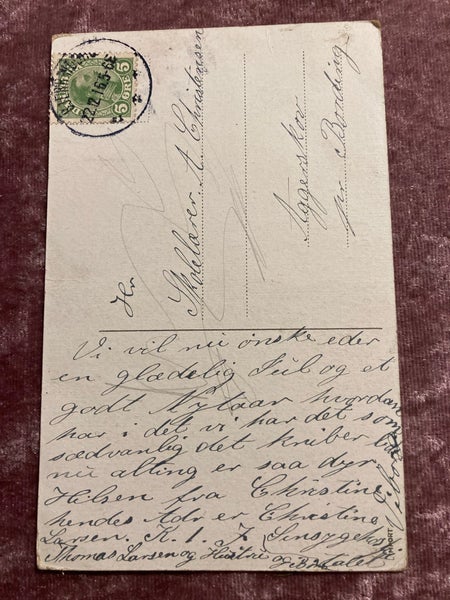 22.12.16.5-6E
5 ØRE 5
Hr.
Skolelærer A Christensen
Aggerskov
pr Bording
Vi vil nu ønske eder
en glædelig Jul og et
godt Nytaar hvordan
har i det vi har det som
sædvanlig det kniber
nu alting er saa dyr
Hilsen fra Christine
hendes Adr er Christine
Larsen. K. 1. J Sinsygehospi
Thomas Larsen og Hustru og
talet